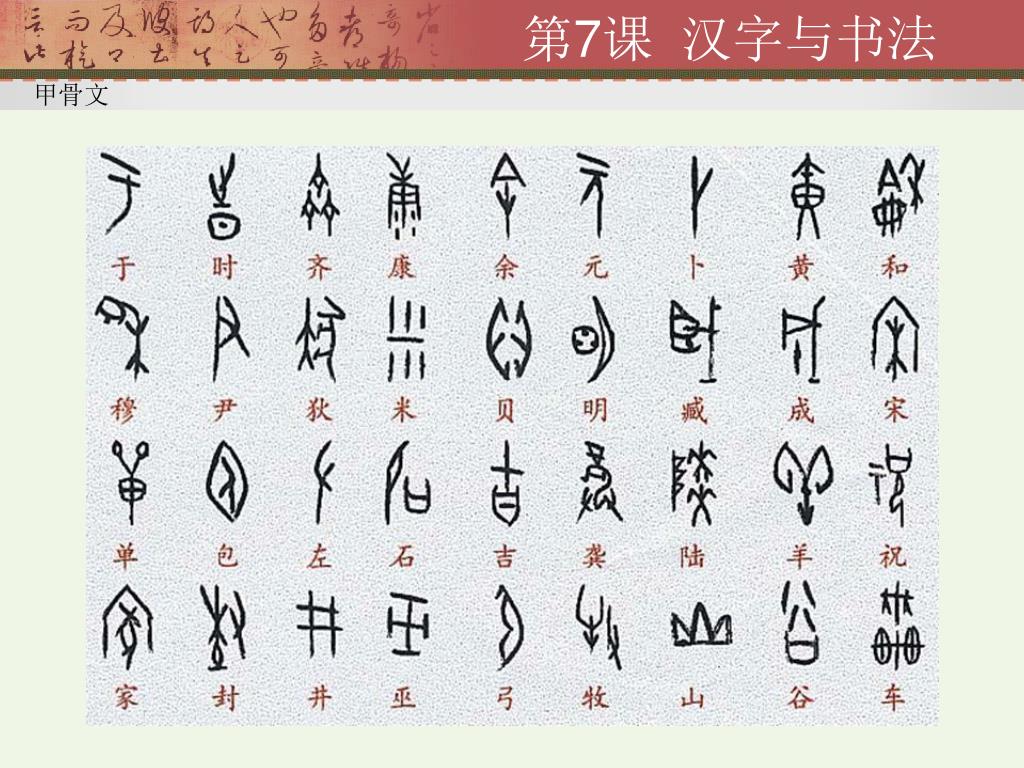 第7课 汉字与书法
甲骨文
于 时 齐 康 余 元 卜 黄 和
穆 尹 狄 米 贝 明 臧 成 宋
单 包 左 石 吉 龚 陆 羊 祝
家 封 井 巫 弓 牧 山 谷 车